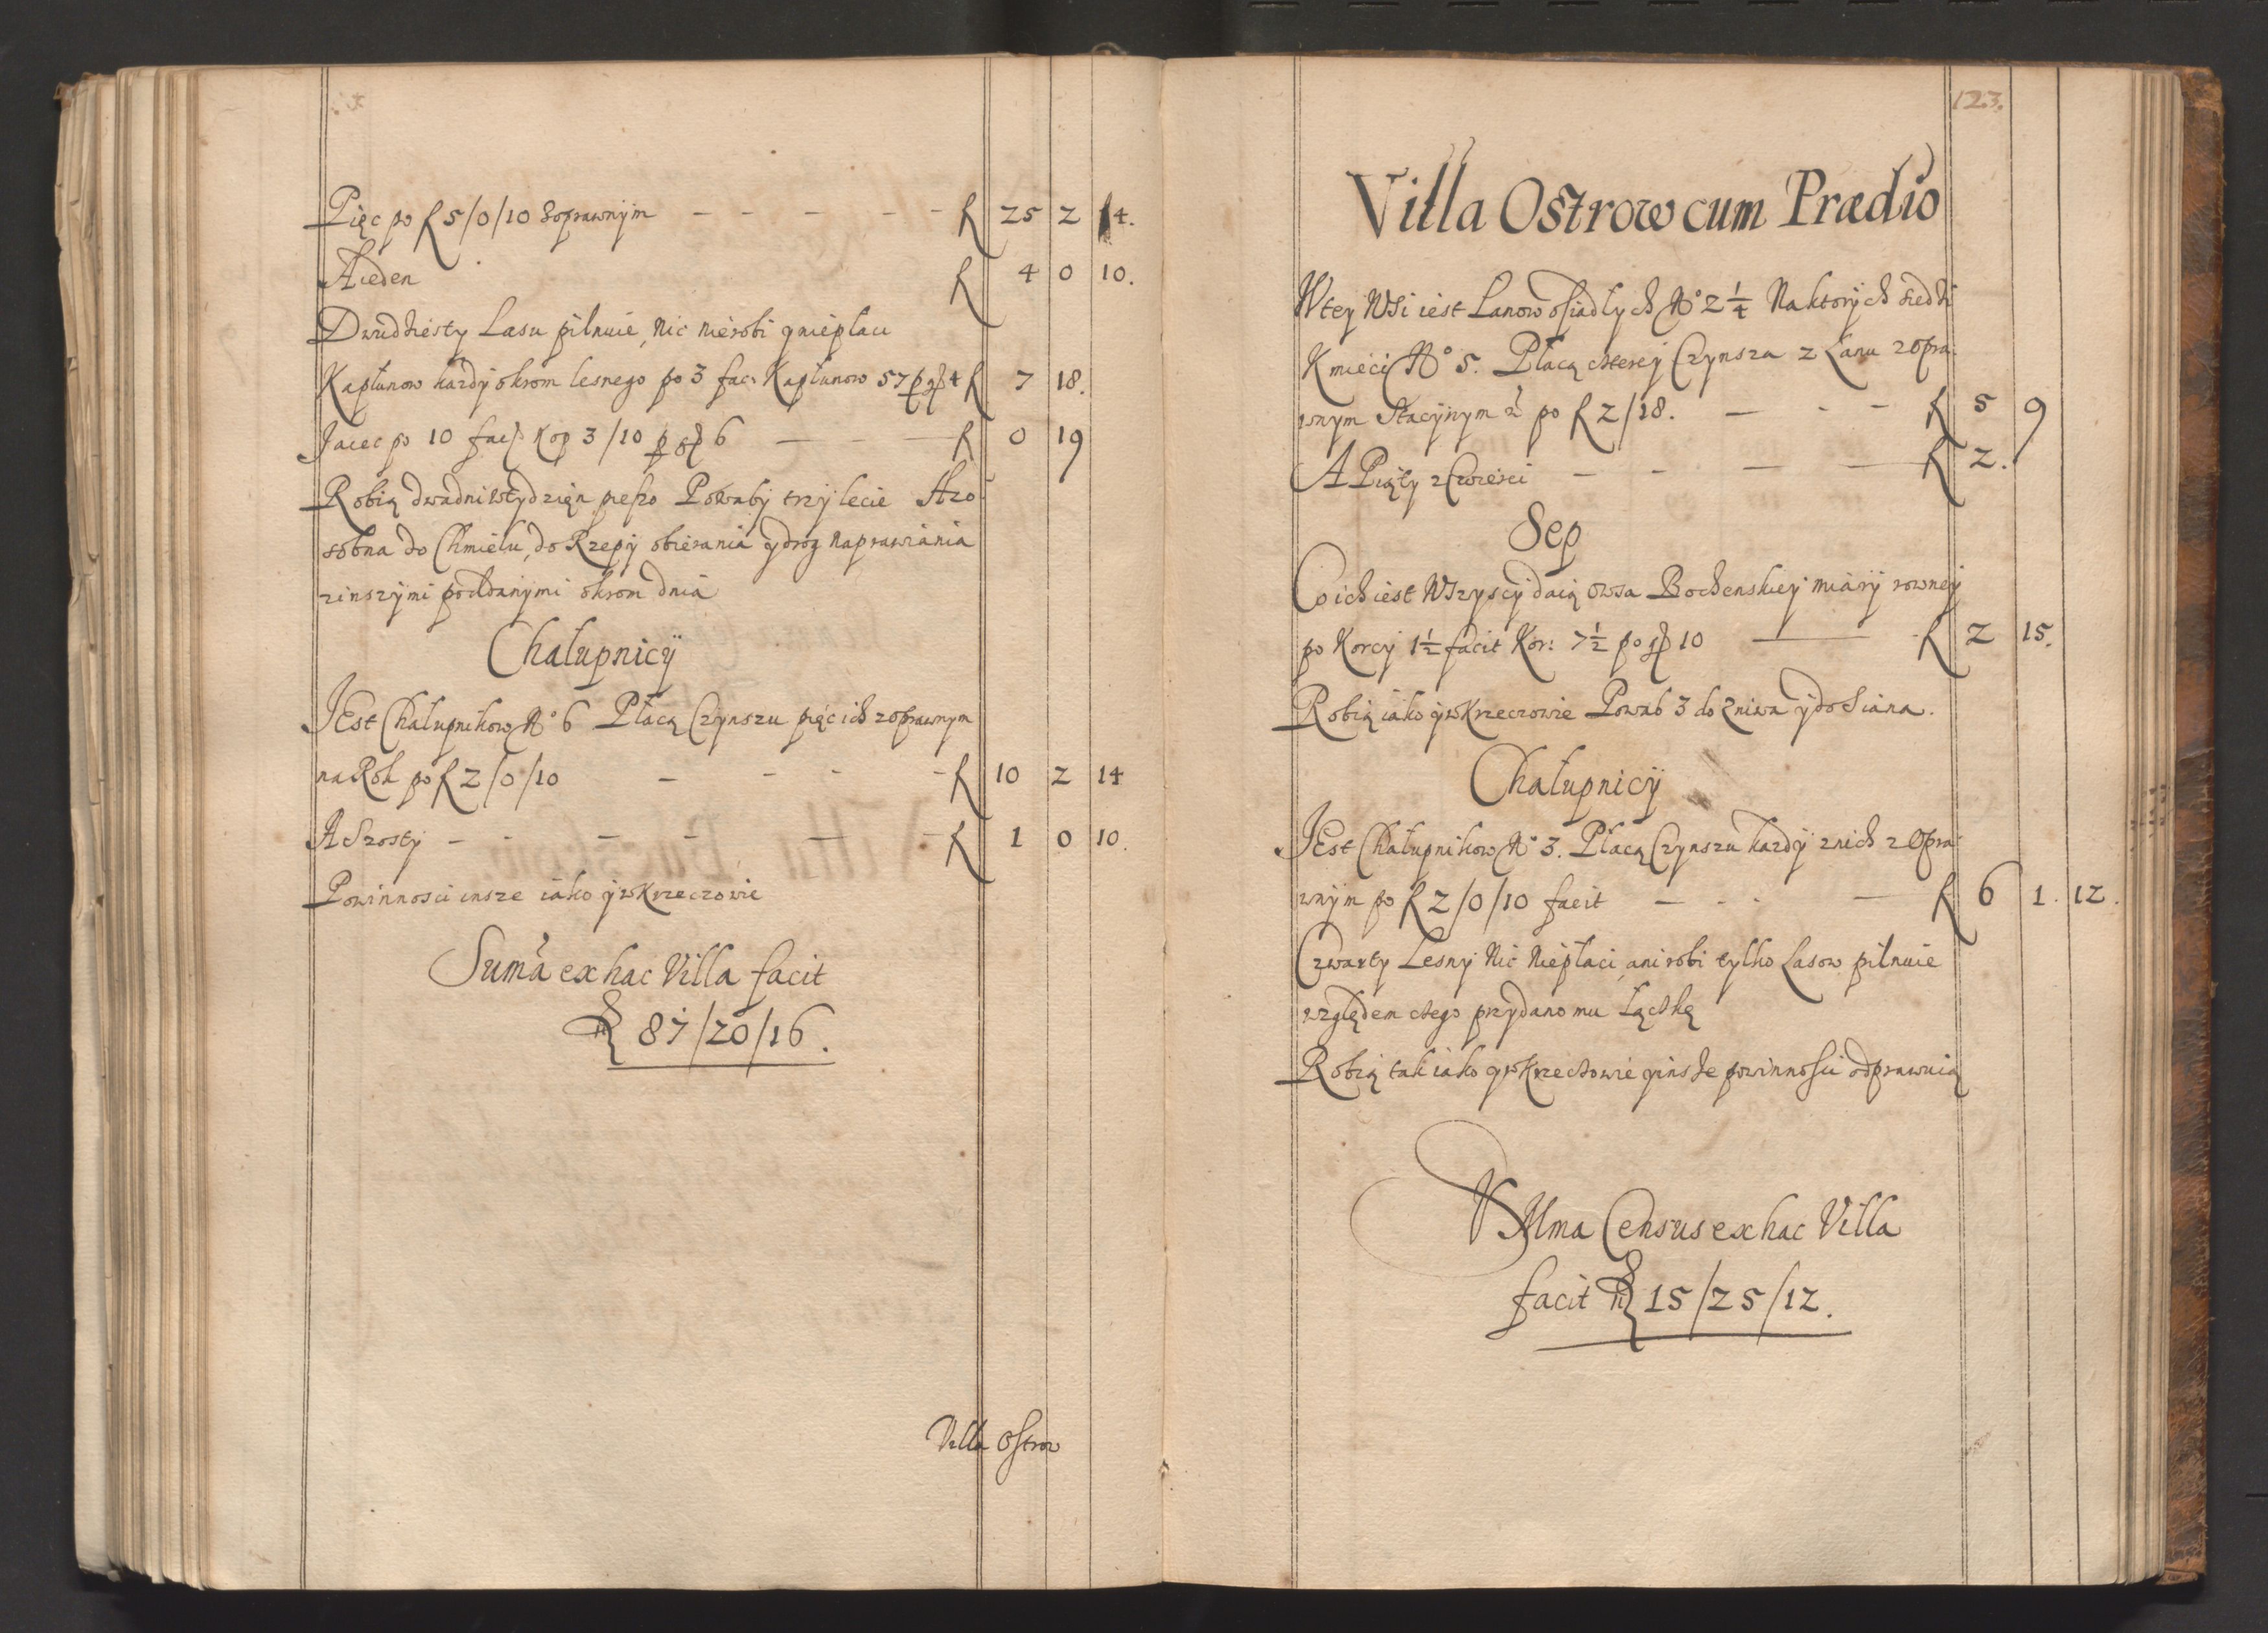 Pięc po f 5/0/10 Soprawnym - - - - - f 25 2 14.
A ieden f 4 0 10.
Dwudziesty Lasu pilnuie, Nic nierobi y nieplaci
Kapłunow każdy okrom lesnego po 3 fac: Kapłunow 57 p gß 4 f 7 18.
Jaiec po 10 facß kop 3/10 p gß 6 - - - f 0 19
Robią dwadni wtydzięn pieszo Powaby trzy lecie A zo
sobna do Chmielu, do Rzepy obierania y drog naprawiania
z inszymi poddanymi okrom dnia
Chałupnicy
JEst Chałupnikow No 6 Płacą Czynszu pięc ich z oprawnym
na Rok po f 2/0/10 - - - - f 10 2 14
A Szosty - - - - - - f 1 0 10.
Powinnosci insze iako y w Krzeczowie
Suma ex hac Villa facit
f 87/20/16.
Villa Ostrow
123.
Villa Ostrow cum Prædio
W tey WSi iest Lanow osiadłych No 2 1/4 Na ktorych siedzi
Kmieci No 5. Płacą czterej Czynsza z Łanu z opra:
wnym Stacyinym po f 2/18. - - - f 5 9
A Piąty z Czwierci - - - - f 2.
Sep
Co ich iest Wszyscy daią owsa Bochenskiey miary rowney
po Korcy 1 1/2 facit Kor: 7 1/2 po gß 10 - f 2 15.
Robią iako y w Krzeczowie Powab 3 do Zniwa y do Siana.
Chałupnicy
JEst Chałupnikow No 3. Płacą Czynszu każdy z nich z Opra
wnym po f 2/0/10 facit - - - f 6 1. 12.
Czwarty Lesny Nic Niepłaci ani robi tylko Lasow pilnuie
względem czego przydano mu Łączkę
Robią tak iako y w Krzeczowie y insze powinnosci odprawuią
SUMma Census ex hac Villa
facit f 15/25/12.